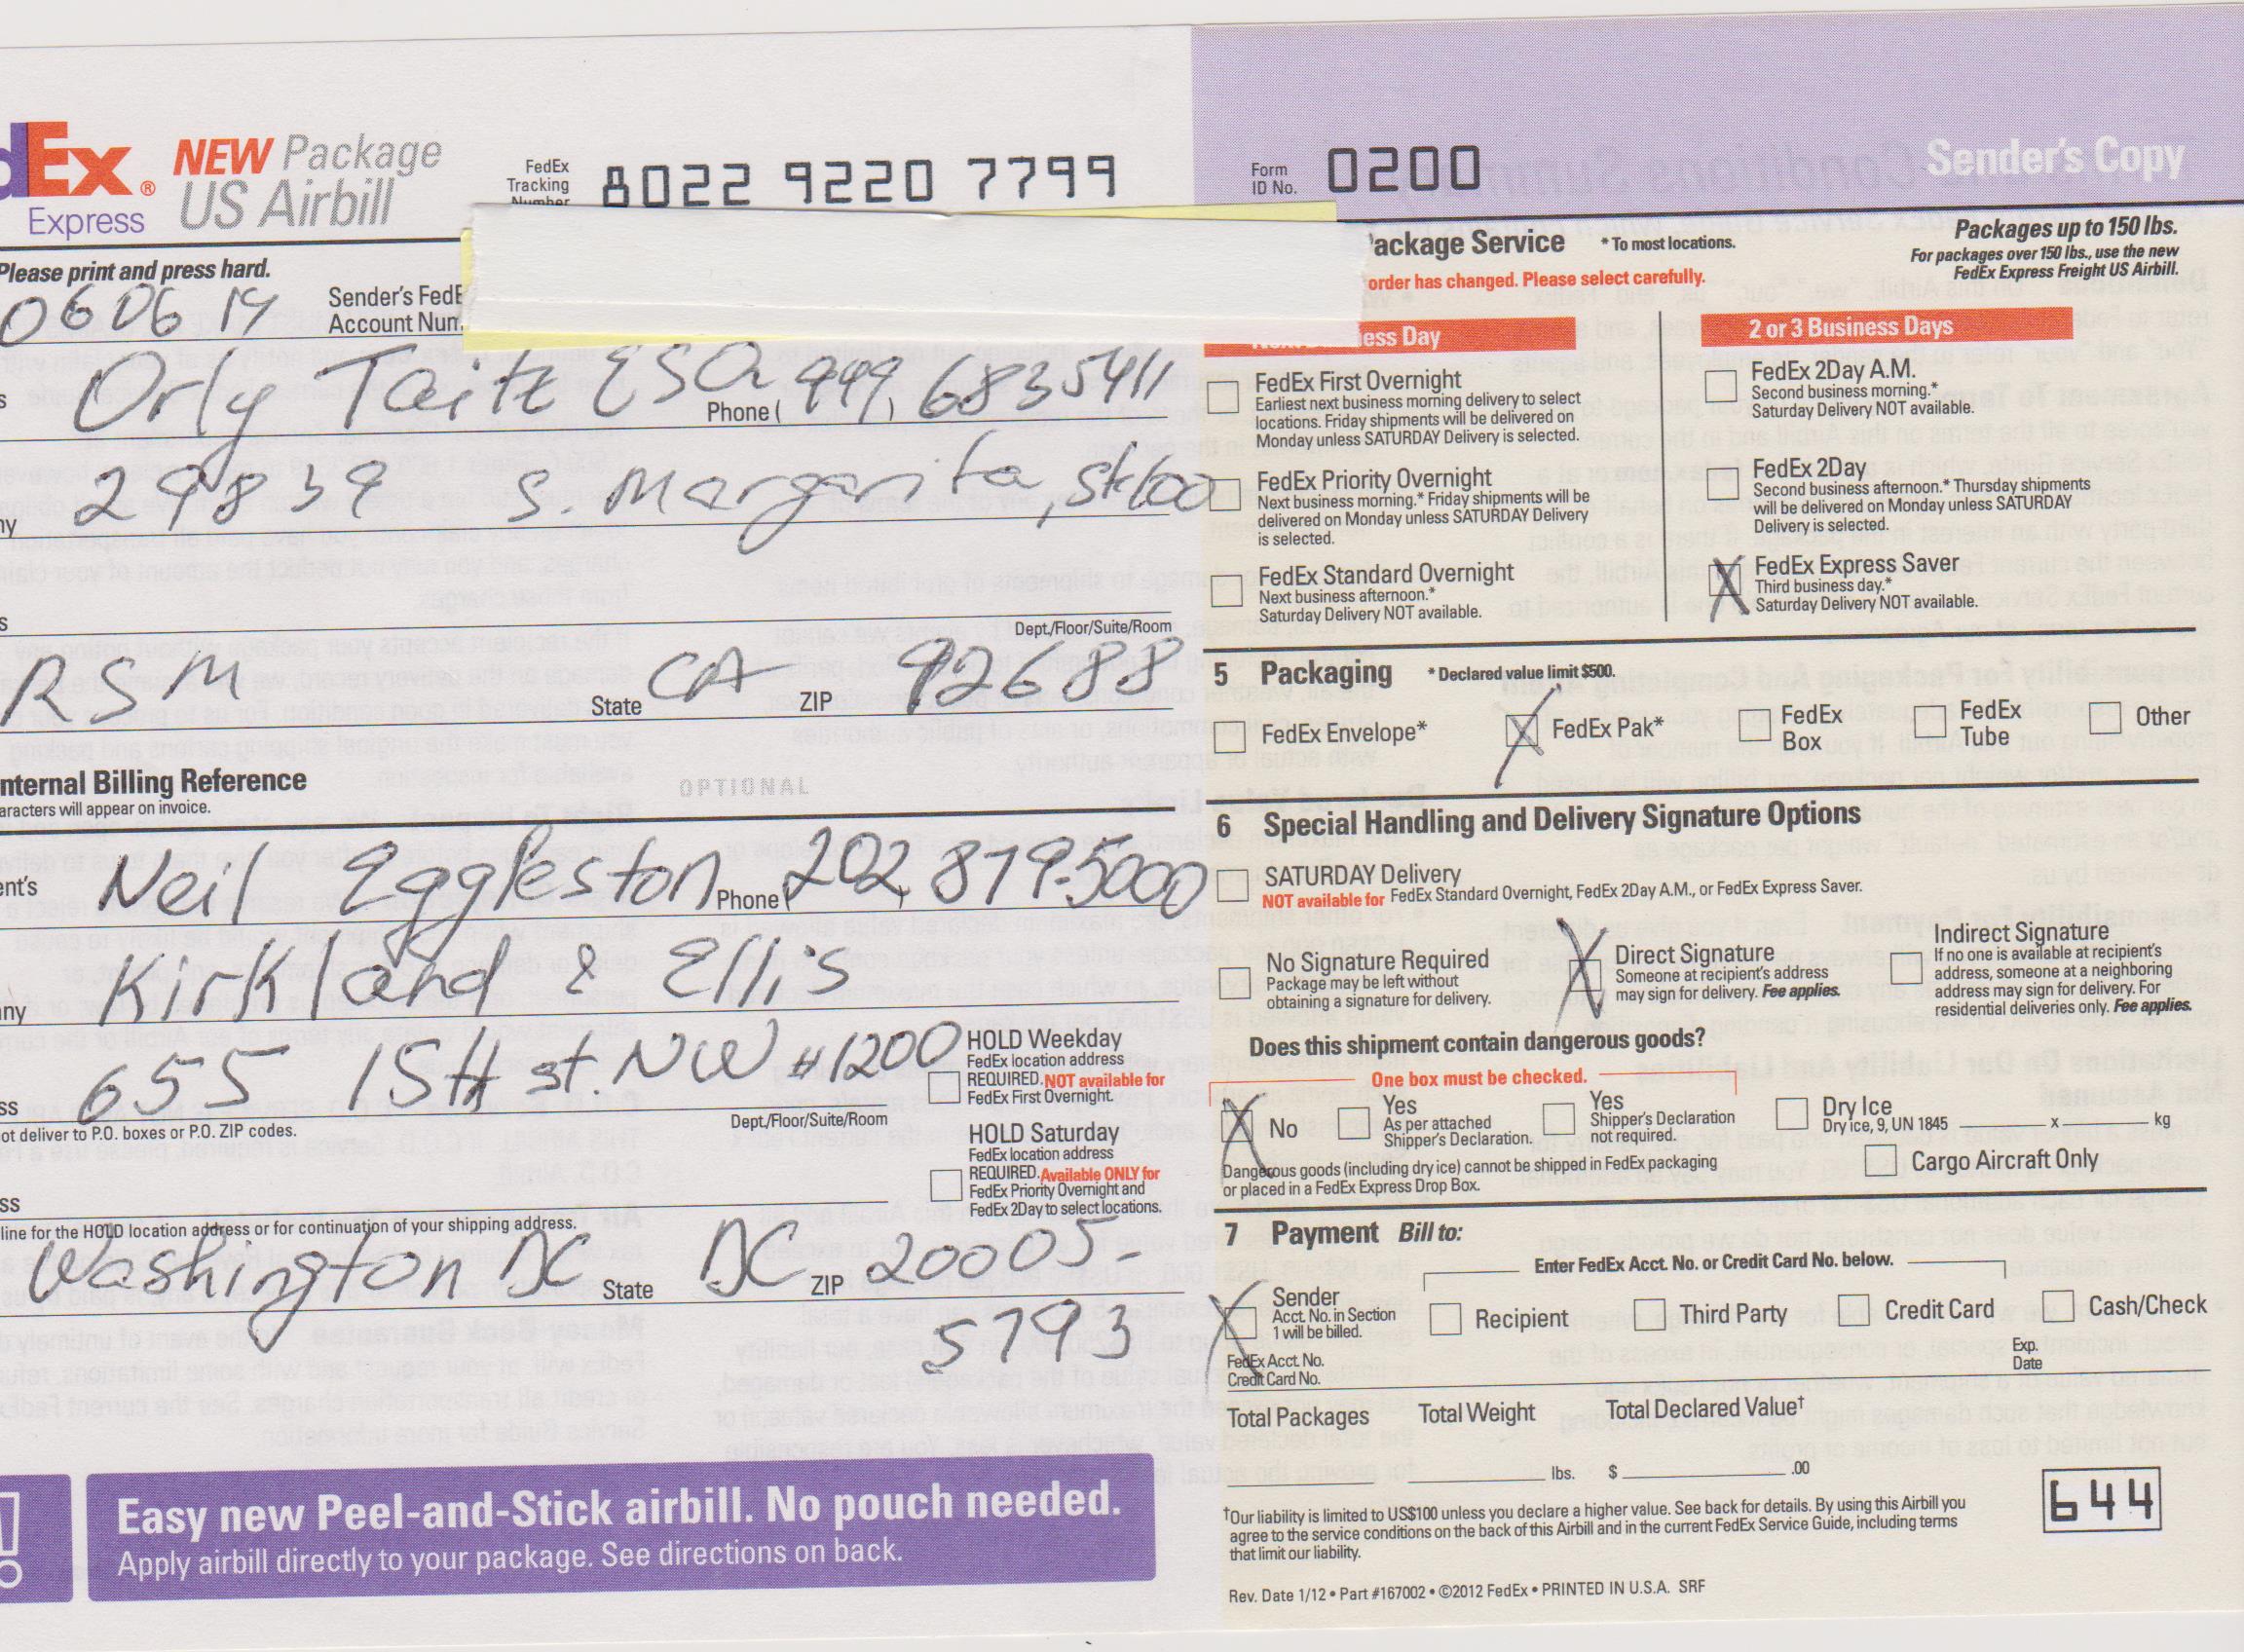 dEx ® NEW Package
Express US Airbill
FedEx
Tracking
Number 8022 9220 7799
Form
ID No. 0200
Sender's Copy
Please print and press hard.
060614
Sender's FedE
Account Num
s Orly Taitz ESQ Phone ( 949 ) 6835411
ny 29839 S. Margarita, Ste100
s
Dept./Floor/Suite/Room
RSM State CA ZIP 92688
nternal Billing Reference
aracters will appear on invoice.
OPTIONAL
ent's Neil Eggleston Phone ( 202 ) 879-5000
ny Kirkland & Ellis
ss 655 15th st. NW #1200
ot deliver to P.O. boxes or P.O. ZIP codes.
Dept./Floor/Suite/Room
ss
line for the HOLD location address or for continuation of your shipping address.
Washington DC State DC ZIP 20005-
5793
HOLD Weekday
FedEx location address
REQUIRED. NOT available for
FedEx First Overnight.
HOLD Saturday
FedEx location address
REQUIRED. Available ONLY for
FedEx Priority Overnight and
FedEx 2Day to select locations.
Easy new Peel-and-Stick airbill. No pouch needed.
Apply airbill directly to your package. See directions on back.
ackage Service * To most locations.
order has changed. Please select carefully.
Packages up to 150 lbs.
For packages over 150 lbs., use the new
FedEx Express Freight US Airbill.
ess Day
FedEx First Overnight
Earliest next business morning delivery to select
locations. Friday shipments will be delivered on
Monday unless SATURDAY Delivery is selected.
FedEx Priority Overnight
Next business morning.* Friday shipments will be
delivered on Monday unless SATURDAY Delivery
is selected.
FedEx Standard Overnight
Next business afternoon.*
Saturday Delivery NOT available.
2 or 3 Business Days
FedEx 2Day A.M.
Second business morning.*
Saturday Delivery NOT available.
FedEx 2Day
Second business afternoon.* Thursday shipments
will be delivered on Monday unless SATURDAY
Delivery is selected.
X FedEx Express Saver
Third business day.*
Saturday Delivery NOT available.
5 Packaging * Declared value limit $500.
FedEx Envelope*
X FedEx Pak*
FedEx
Box
FedEx
Tube
Other
6 Special Handling and Delivery Signature Options
SATURDAY Delivery
NOT available for FedEx Standard Overnight, FedEx 2Day A.M., or FedEx Express Saver.
No Signature Required
Package may be left without
obtaining a signature for delivery.
X Direct Signature
Someone at recipient's address
may sign for delivery. Fee applies.
Indirect Signature
If no one is available at recipient's
address, someone at a neighboring
address may sign for delivery. For
residential deliveries only. Fee applies.
Does this shipment contain dangerous goods?
One box must be checked.
X No
Yes
As per attached
Shipper's Declaration.
Yes
Shipper's Declaration
not required.
Dry Ice
Dry ice, 9, UN 1845 x kg
Dangerous goods (including dry ice) cannot be shipped in FedEx packaging
or placed in a FedEx Express Drop Box.
Cargo Aircraft Only
7 Payment Bill to:
Enter FedEx Acct. No. or Credit Card No. below.
X Sender
Acct. No. in Section
1 will be billed.
Recipient
Third Party
Credit Card
Cash/Check
FedEx Acct. No.
Credit Card No.
Exp.
Date
Total Packages Total Weight Total Declared Value†
lbs. $ .00
†Our liability is limited to US$100 unless you declare a higher value. See back for details. By using this Airbill you
agree to the service conditions on the back of this Airbill and in the current FedEx Service Guide, including terms
that limit our liability.
644
Rev. Date 1/12 • Part #167002 • ©2012 FedEx • PRINTED IN U.S.A. SRF